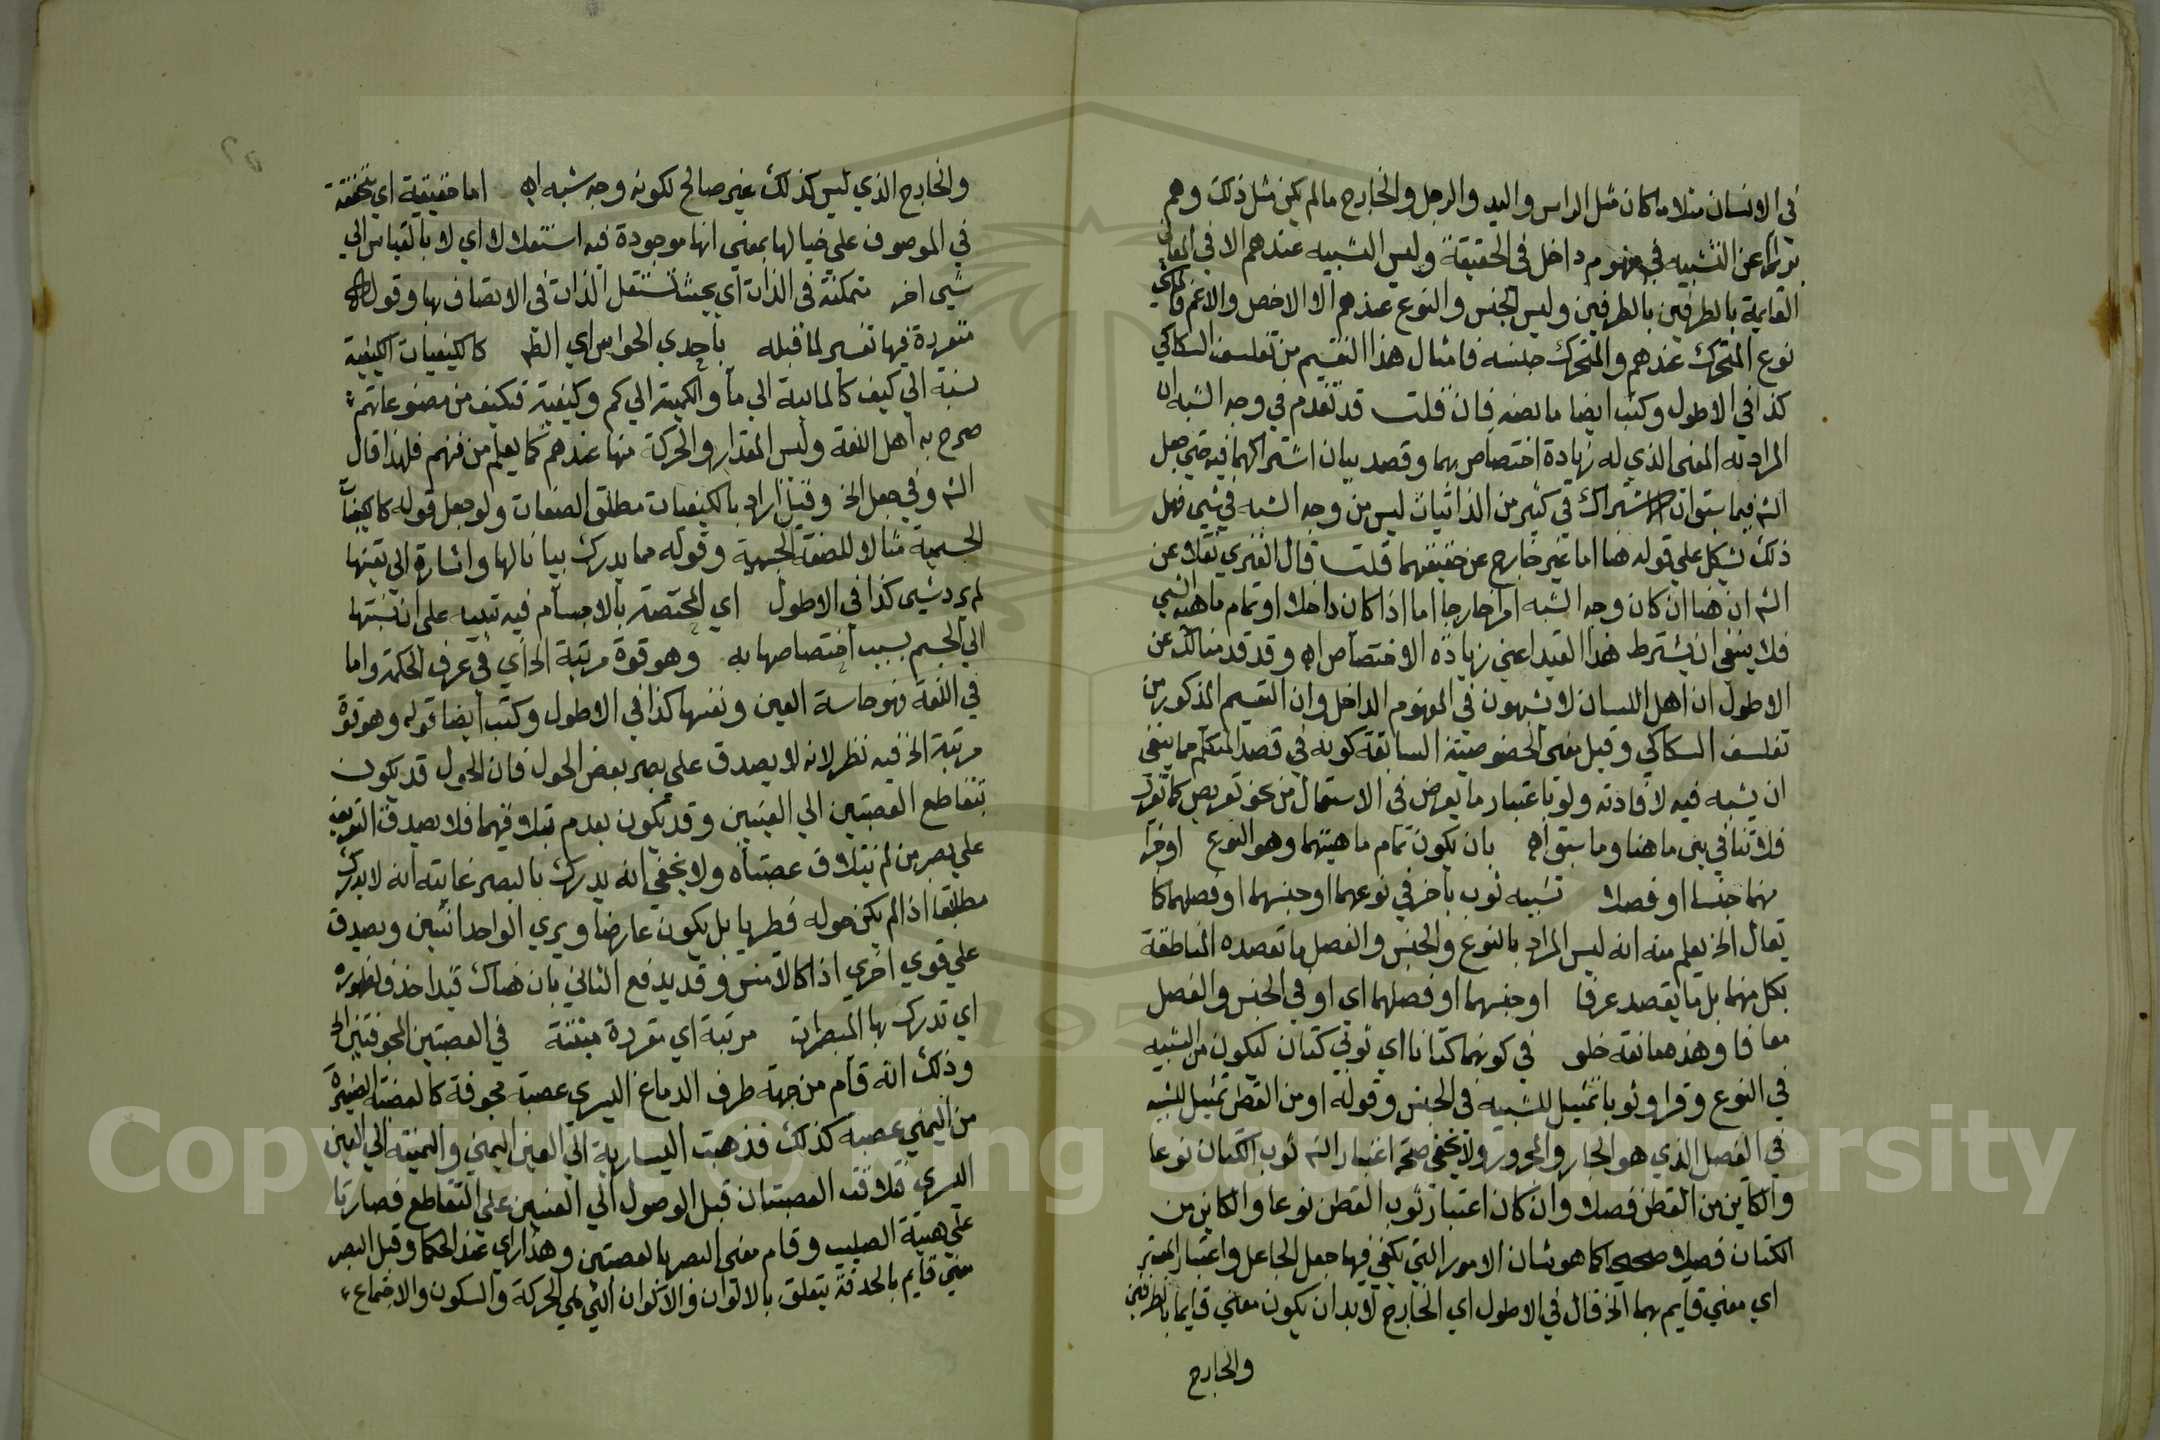 في الانسان مثلا ما كان مثل الراس واليد والرجل والخارج مالم يكن مثل ذلك وهم
عن التشبيه في مفهوم داخل في الحقيقة وليس التشبيه عندهم الا في المعاني
القايمة بالطرفين وليس الجنس والنوع عندهم الا الاخص والاعم
نوع المتحرك عندهم والمتحرك جنسه فامثال هذا التقسيم من تفلسف السكاكي
كذا في الاطول وكتب ايضا ما نصه فان قلت قد تقدم في وجه الشبه ان
المراد به المعني الذي له زيادة اختصاص بهما وقصد بيان اشتراكهما فيه حتي جعل
الش فيما سبق ان الاشتراك في كثير من الذاتيات ليس من وجه الشبه في شي فهل
ذلك يشكل علي قوله هنا اما غير خارج عن حقيقتهما قلت قال الفنري نقلا عن
الش ان هنا ان كان وجه الشبه امرا خارجا اما اذا كان داخلا او تمام ماهية الشي
فلا ينبغي ان يشترط هذا القيد اعني زيادة الاختصاص اه وقد قدمنا لك عن
الاطول ان اهل اللسان لا يشبهون في المفهوم الداخل وان التقسيم المذكور من
تفلسف السكاكي وقيل معني الخصوصية السابقة كونه في قصد المتكلم مما ينبغي
ان يشبه فيه لافادته ولو باعتبار ما يعرض في الاستعمال من نحو تعريض كما تعرف
فلا تنافي بين ما هنا وما سبق اه بان يكون تمام ماهيتهما وهو النوع او جزا
منهما جنسا او فصلا تشبيه ثوب باخر في نوعهما او جنسهما او فصلهما كا
يقال الخ يعلم منه انه ليس المراد بالنوع والجنس والفصل ما تقصده المناطقة
بكل منهما بل ما يقصد عرفا او جنسهما او فصلهما اي او في الجنس والفصل
معا فا وهذه مانعة خلو في كونهما كتانا اي ثوبي كتان ليكون من التشبيه
في النوع وقرا وثوبا تمثيل للتشبيه في الجنس وقوله او من القطن تمثيل للتشبيه
في الفصل الذي هو الجار والمجرور ولا يخفي صحة اعتبار الش ثوب الكتان نوعا
والكاين من القطن فصلا وان كان اعتبار ثوب القطن نوعا والكاين من
الكتان فصلا صحيحا كما هو شان الامور التي يكفي فيها جعل الجاعل واعتبار المعتبر
اي معني قايم بهما الخ قال في الاطول اي الخارج لا بد ان يكون معني قايما بالطرفين
والخارج
والخارج الذي ليس كذلك غير صالح لكونه وجه شبه اه اما حقيقية اي متحققة
في الموصوف علي حيالها بمعني انها موجودة فيه استقلالا اي لا بالقياس الي
شي اخر متمكنة في الذات اي بحيث تستقل الذات في الاتصاف بها وقوله
متقررة فيها تفسير لما قبله باحدي الحواس اي الظ كالكيفيات الكيفية
نسبة الي كيف كالماهية الي ما والكمية الي كم وكيفية فكيف من مصنوعاتهم
صرح به اهل اللغة وليس المقدار والحركة منها عندهم كما يعلم من فنهم فلهذا قال
الش وفي جعل الخ وقيل اراد بالكيفيات مطلق الصفات ولو جعل قوله كالكيفيات
الجسمية مثالا للصفة الحسية وقوله مما يدرك بيانا لها واشارة الي بقيتها
لم يرد شي كذا في الاطول اي المختصة بالاجسام فيه تنبيه علي ان نسبتها
الي الجسم بسبب اختصاصها به وهو قوة مرتبة الخ اي في عرف الحكمة واما
في اللغة فهو حاسة العين ونفسها كذا في الاطول وكتب ايضا قوله وهو قوة
مرتبة الخ فيه نظر لانه لا يصدق علي بصر بعض الحول فان الحول قد يكون
بتقاطع العصبتين الي العينين وقد يكون بعدم تلاقيهما فلا يصدق التعريف
علي بصر من لم يتلاق عصبتاه ولا يخفي انه يدرك بالبصر غايته انه لا يدرك
مطابقا اذا لم يكن حوله فطريا بل يكون عارضا ويري الواحد اثنين ويصدق
علي قوي اخري اذا كاللامس وقد يدفع الثاني بان هناك قيدا حذف لظهوره
اي تدرك بها المبصرات مرتبة اي متقررة مثبتة في العصبتين المجوفتين الخ
وذلك انه قام من جهة طرف الدماغ اليسري عصبة مجوفة كالقصبة الصغيرة
من اليمني عصبة كذلك فذهبت اليسارية الي العين اليمني واليمنية الي العين
اليسري فتلاقت العصبتان قبل الوصول الي العينين علي التقاطع فصارتا
علي هيئة الصليب وقام معني البصر بالعصبتين وهذا راي عند الحكما وقيل البصر
معني قايم بالحدقة يتعلق بالالوان والاكوان التي هي الحركة والسكون والاجتماع
Copyright © King Saud University
195